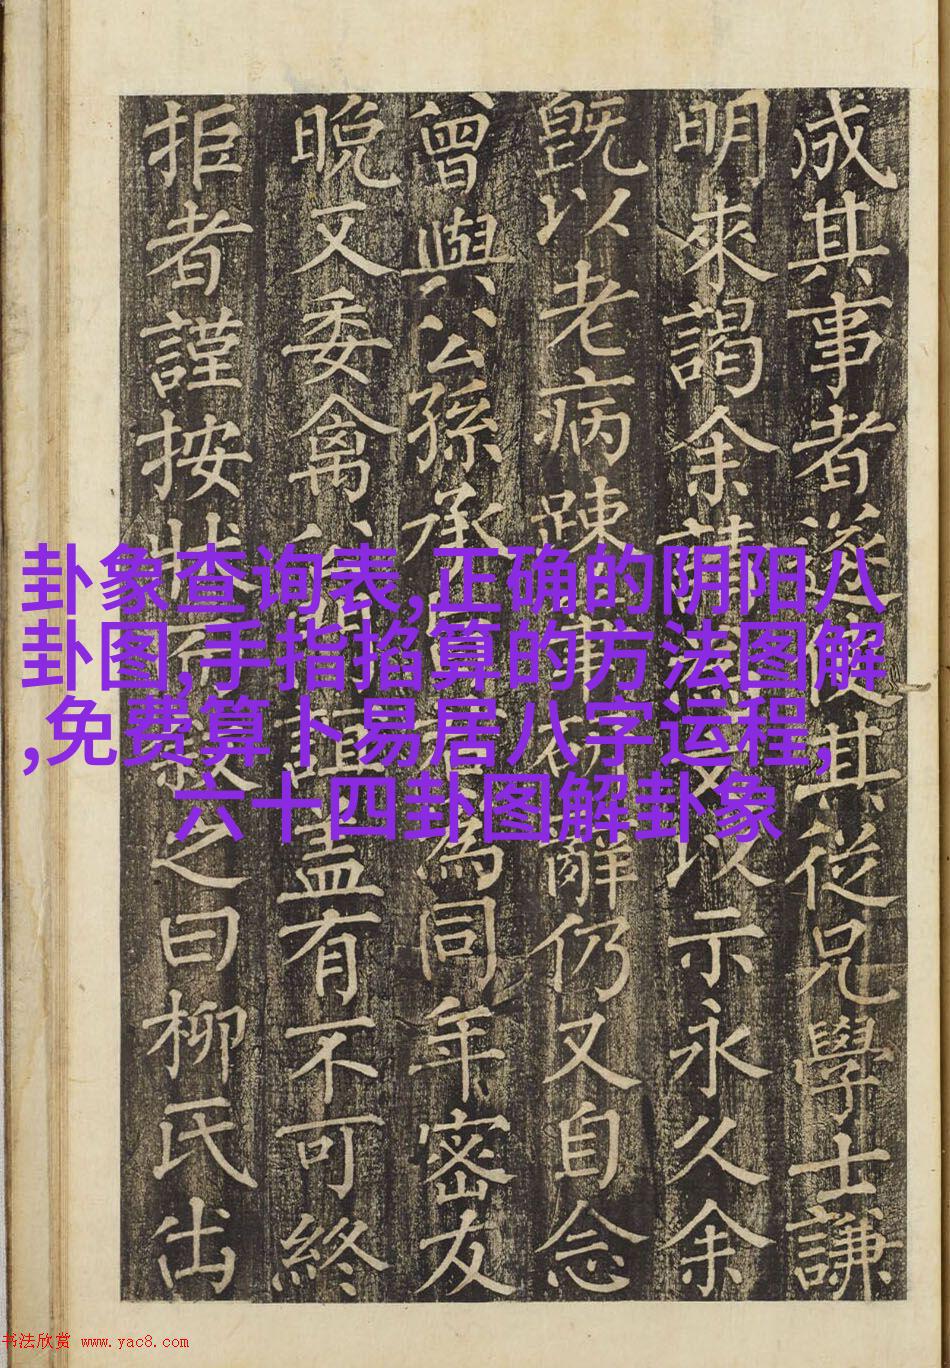 成其事者遂使其從兄學士謙
明來謁余請文以示永久余
既以老病踈事研辭仍又自念
曾與公孫承為同年密友
晚又委禽誼盖有不可終
拒者謹按狀而敘之曰柳氏出
卦象查询表,正确的阴阳八
卦图,手指掐算的方法图解
,免费算卜易居八字运程,
六十四卦图解卦象
书法欣赏 www.yac8.com